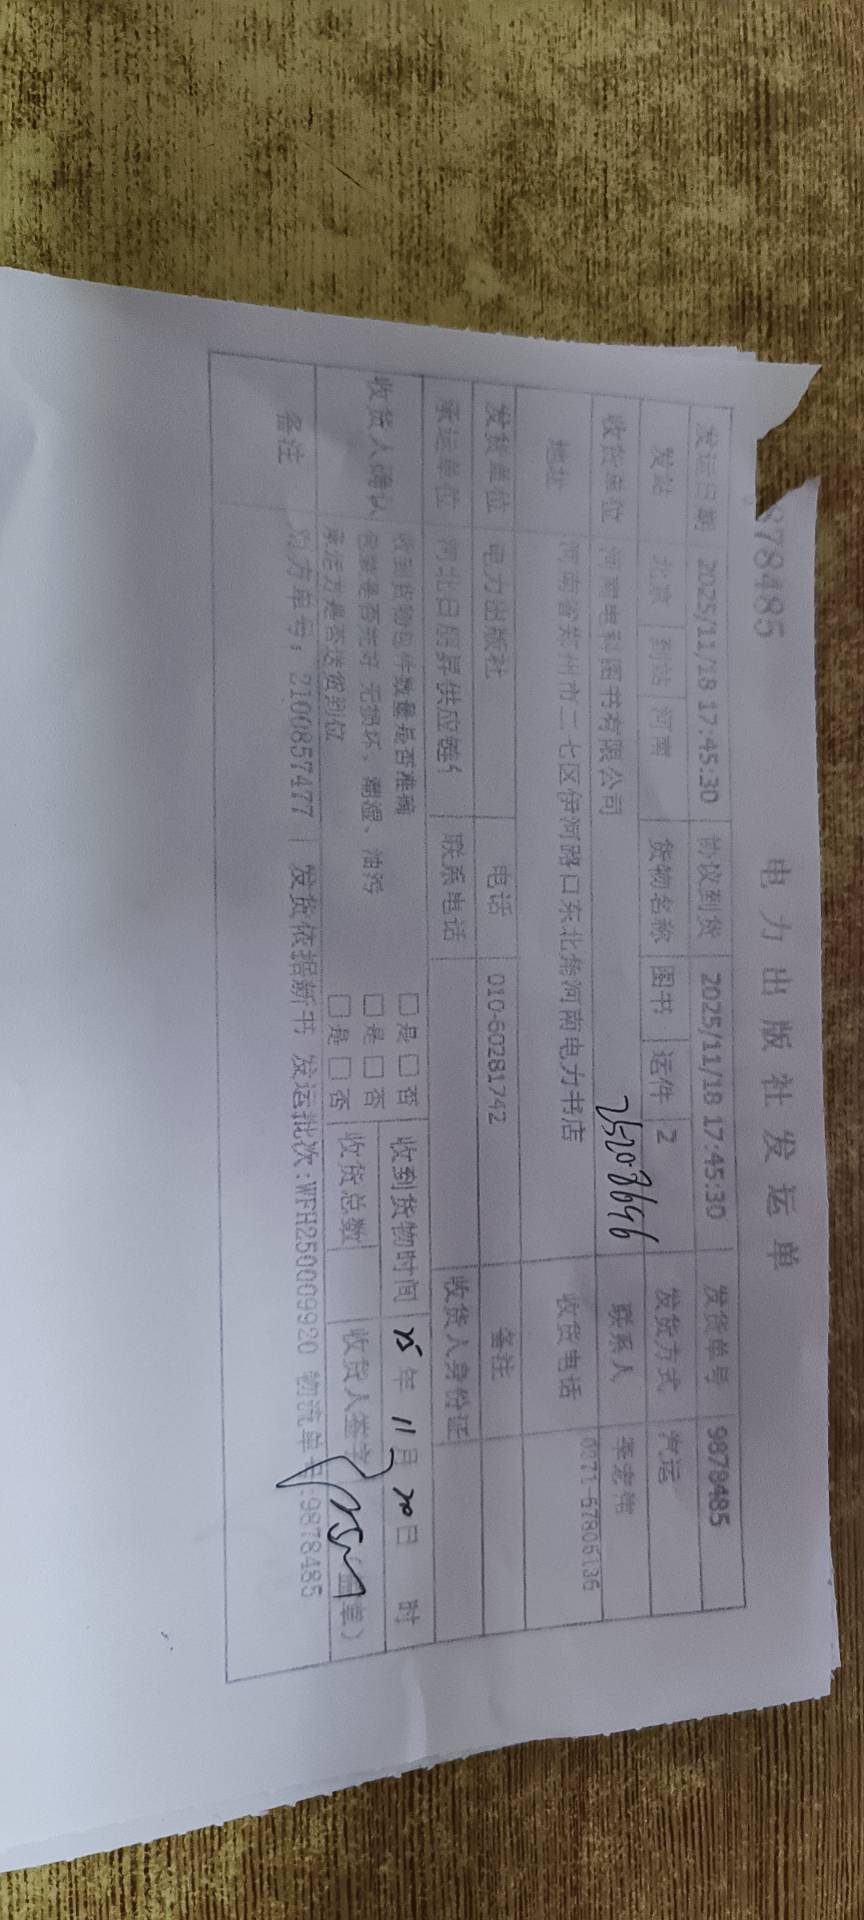 878485
电力出版社发运单
发运日期 2025/11/18 17:45:30 协议到货 2025/11/18 17:45:30 发货单号 9878485
发站 北京 到站 河南 货物名称 图书 运件 2 发货方式 汽运
收货单位 河南电科图书有限公司 25208696 联系人
地址 河南省郑州市二七区伊河路口东北角河南电力书店 收货电话 0371-67806136
发货单位 电力出版社 电话 010-60281742 备注
承运单位 河北日 昇供应链 联系电话 收货人身份证
收货人确认 收到货物包件数量是否准确 □是 □否 收到货物时间 25年 11月 20日 时
包装是否完好 无损坏、潮湿、油污 □是 □否 收货总数 收货人签字 (盖章)
承运方是否送货到位 □是 □否
备注 对方单号: 2100857477 | 发货依据新书 发运批次:WFH250009920 物流单号:9878485